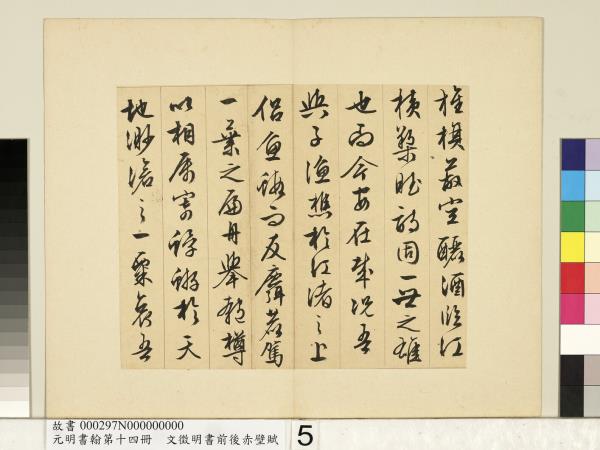 旌旗蔽空釃酒臨江
横槊賦詩固一世之雄
也而今安在哉況吾
與子漁樵於江渚之上
侣魚蝦而友麋鹿駕
一葉之扁舟舉匏樽
以相属寄蜉蝣於天
地渺滄海之一粟哀吾
故書 000297N000000000
元明書翰第十四冊 文徵明書前後赤壁賦
5